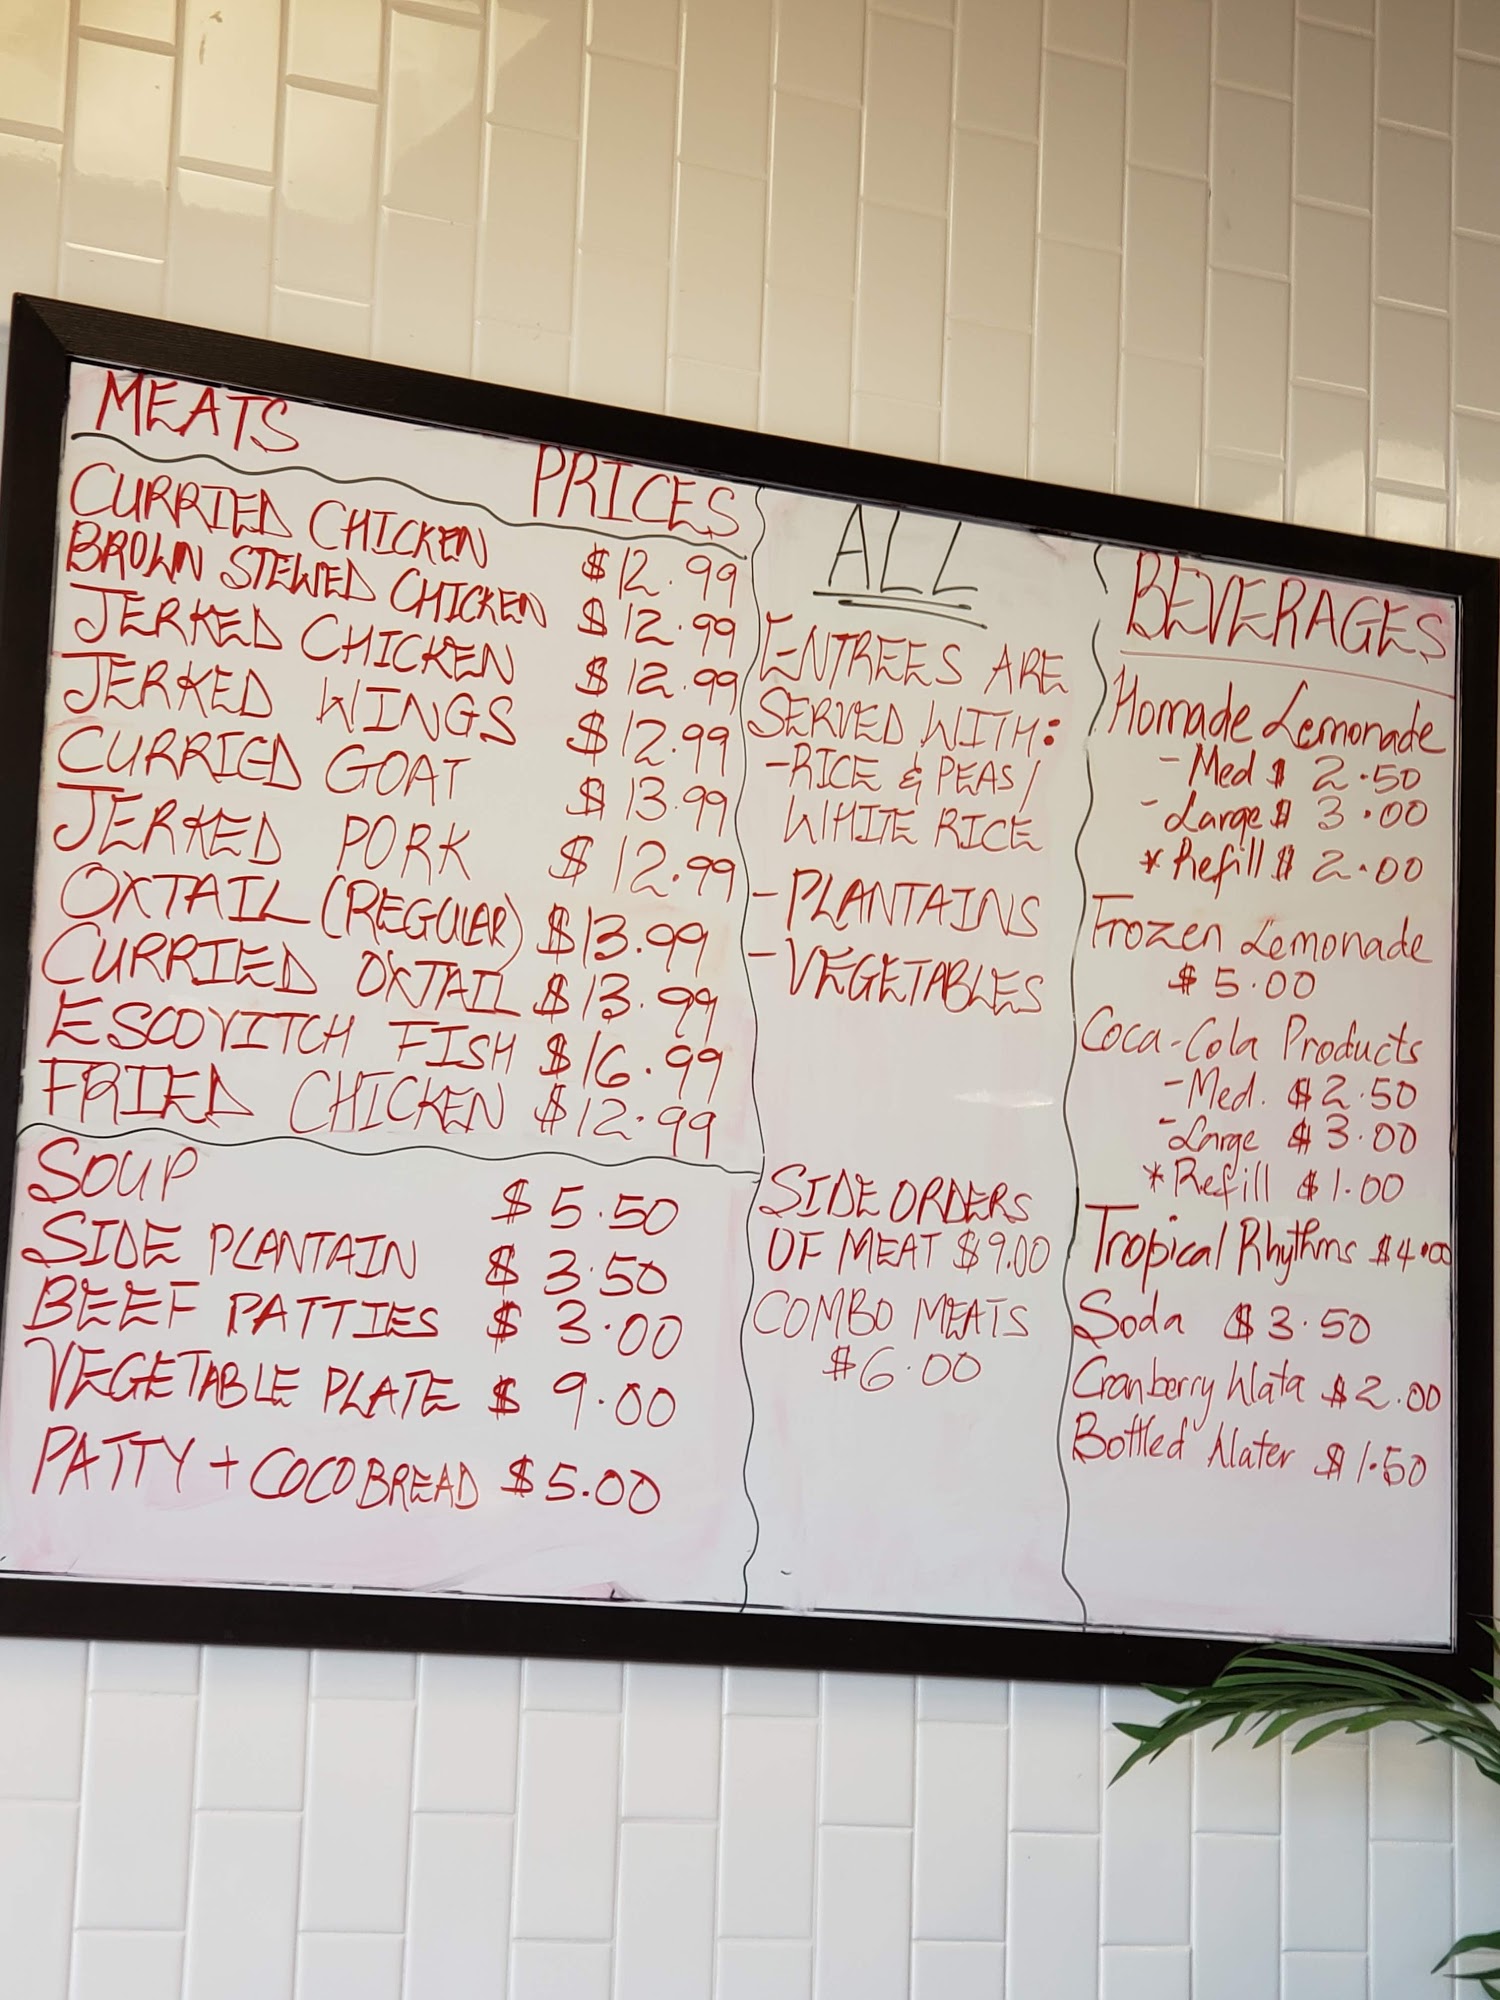 MEATS PRICES
CURRIED CHICKEN $12.99
BROWN STEWED CHICKEN $12.99
JERKED CHICKEN $12.99
JERKED WINGS $12.99
CURRIED GOAT $13.99
JERKED PORK $12.99
OXTAIL (REGULAR) $13.99
CURRIED OXTAIL $13.99
ESCOVITCH FISH $16.99
FRIED CHICKEN $12.99
SOUP $5.50
SIDE PLANTAIN $3.50
BEEF PATTIES $3.00
VEGETABLE PLATE $9.00
PATTY + COCOBREAD $5.00
ALL
ENTREES ARE
SERVED WITH:
-RICE & PEAS/
WHITE RICE
-PLANTAINS
-VEGETABLES
SIDE ORDERS
OF MEAT $9.00
COMBO MEATS
$6.00
BEVERAGES
Homade Lemonade
- Med $2.50
- Large $3.00
* Refill $2.00
Frozen Lemonade
$5.00
Coca-Cola Products
- Med. $2.50
- Large $3.00
* Refill $1.00
Tropical Rhythms $4.00
Soda $3.50
Cranberry Wata $2.00
Bottled Water $1.50